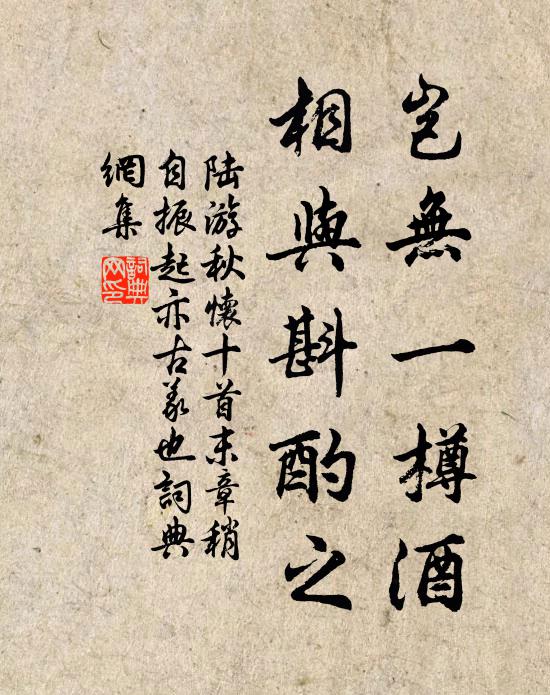 豈無一樽酒
相與斟酌之
陸游秋懷十首末章稍
自振起亦古義也詞典
網集
詞典
网印